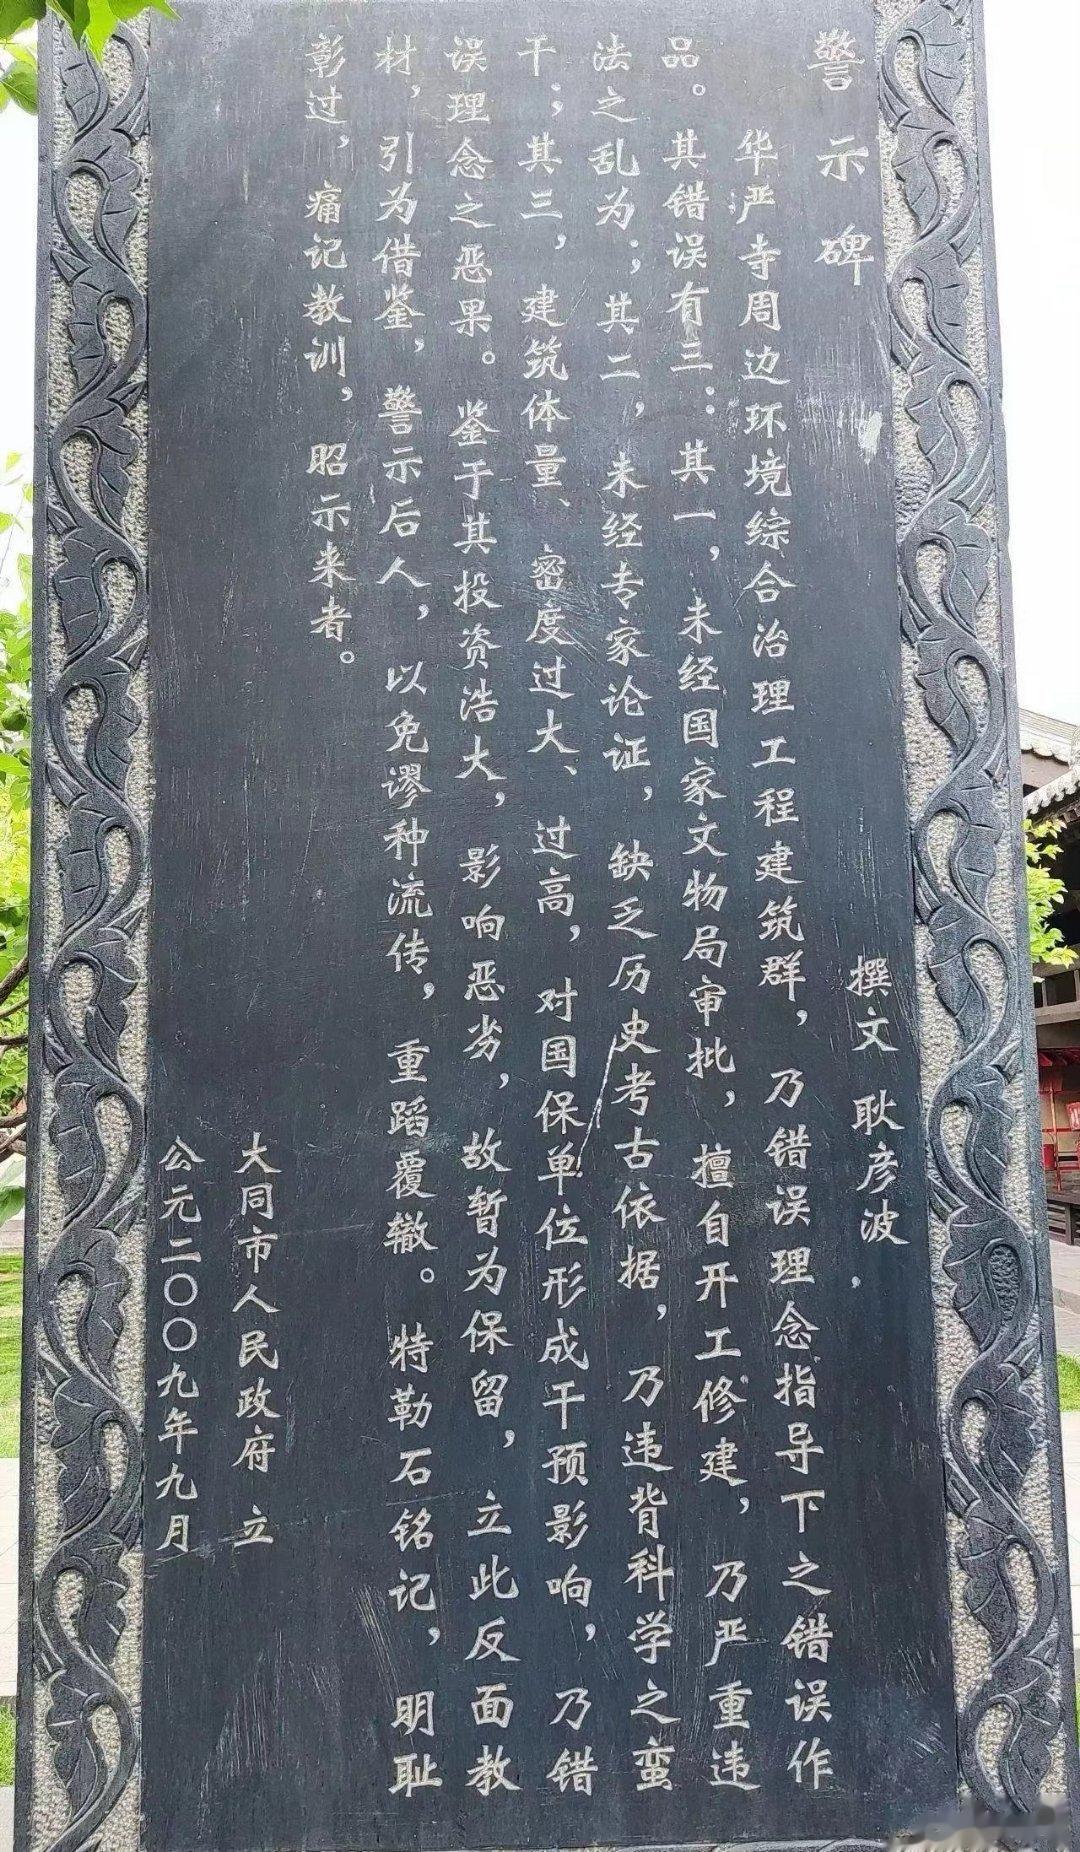 警示碑
撰文 耿彦波
华严寺周边环境综合治理工程建筑群，乃错误理念指导下之错误作
品。其错误有三：其一，未经国家文物局审批，擅自开工修建，乃严重违
法之乱为；其二，未经专家论证，缺乏历史考古依据，乃违背科学之蛮
干；其三，建筑体量、密度过大、过高，对国保单位形成干预影响，乃错
误理念之恶果。鉴于其投资浩大，影响恶劣，故暂为保留，立此反面教
材，引为借鉴，警示后人，以免谬种流传，重蹈覆辙。特勒石铭记，明耻
彰过，痛记教训，昭示来者。
大同市人民政府 立
公元二〇〇九年九月